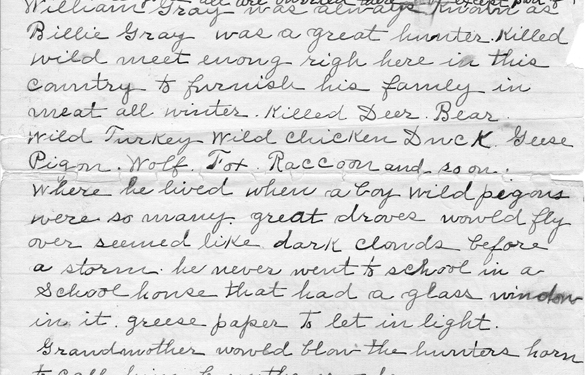 all are
William Gray was always known as
Billie Gray was a great hunter. Killed
wild meet enong righ here in this
country to furnish his family in
meat all winter. Killed Deer. Bear.
Wild Turkey Wild Chicken Duck. Geese
Pigon. Wolf. Fox. Raccoon and so on.
Where he lived when a boy Wild pegons
were so many. great droves would fly
over seemed like dark clouds before
a storm. he never went to school in a
School house that had a glass window
in it. greese paper to let in light.
Grandmother would blow the hunters horn
to call him